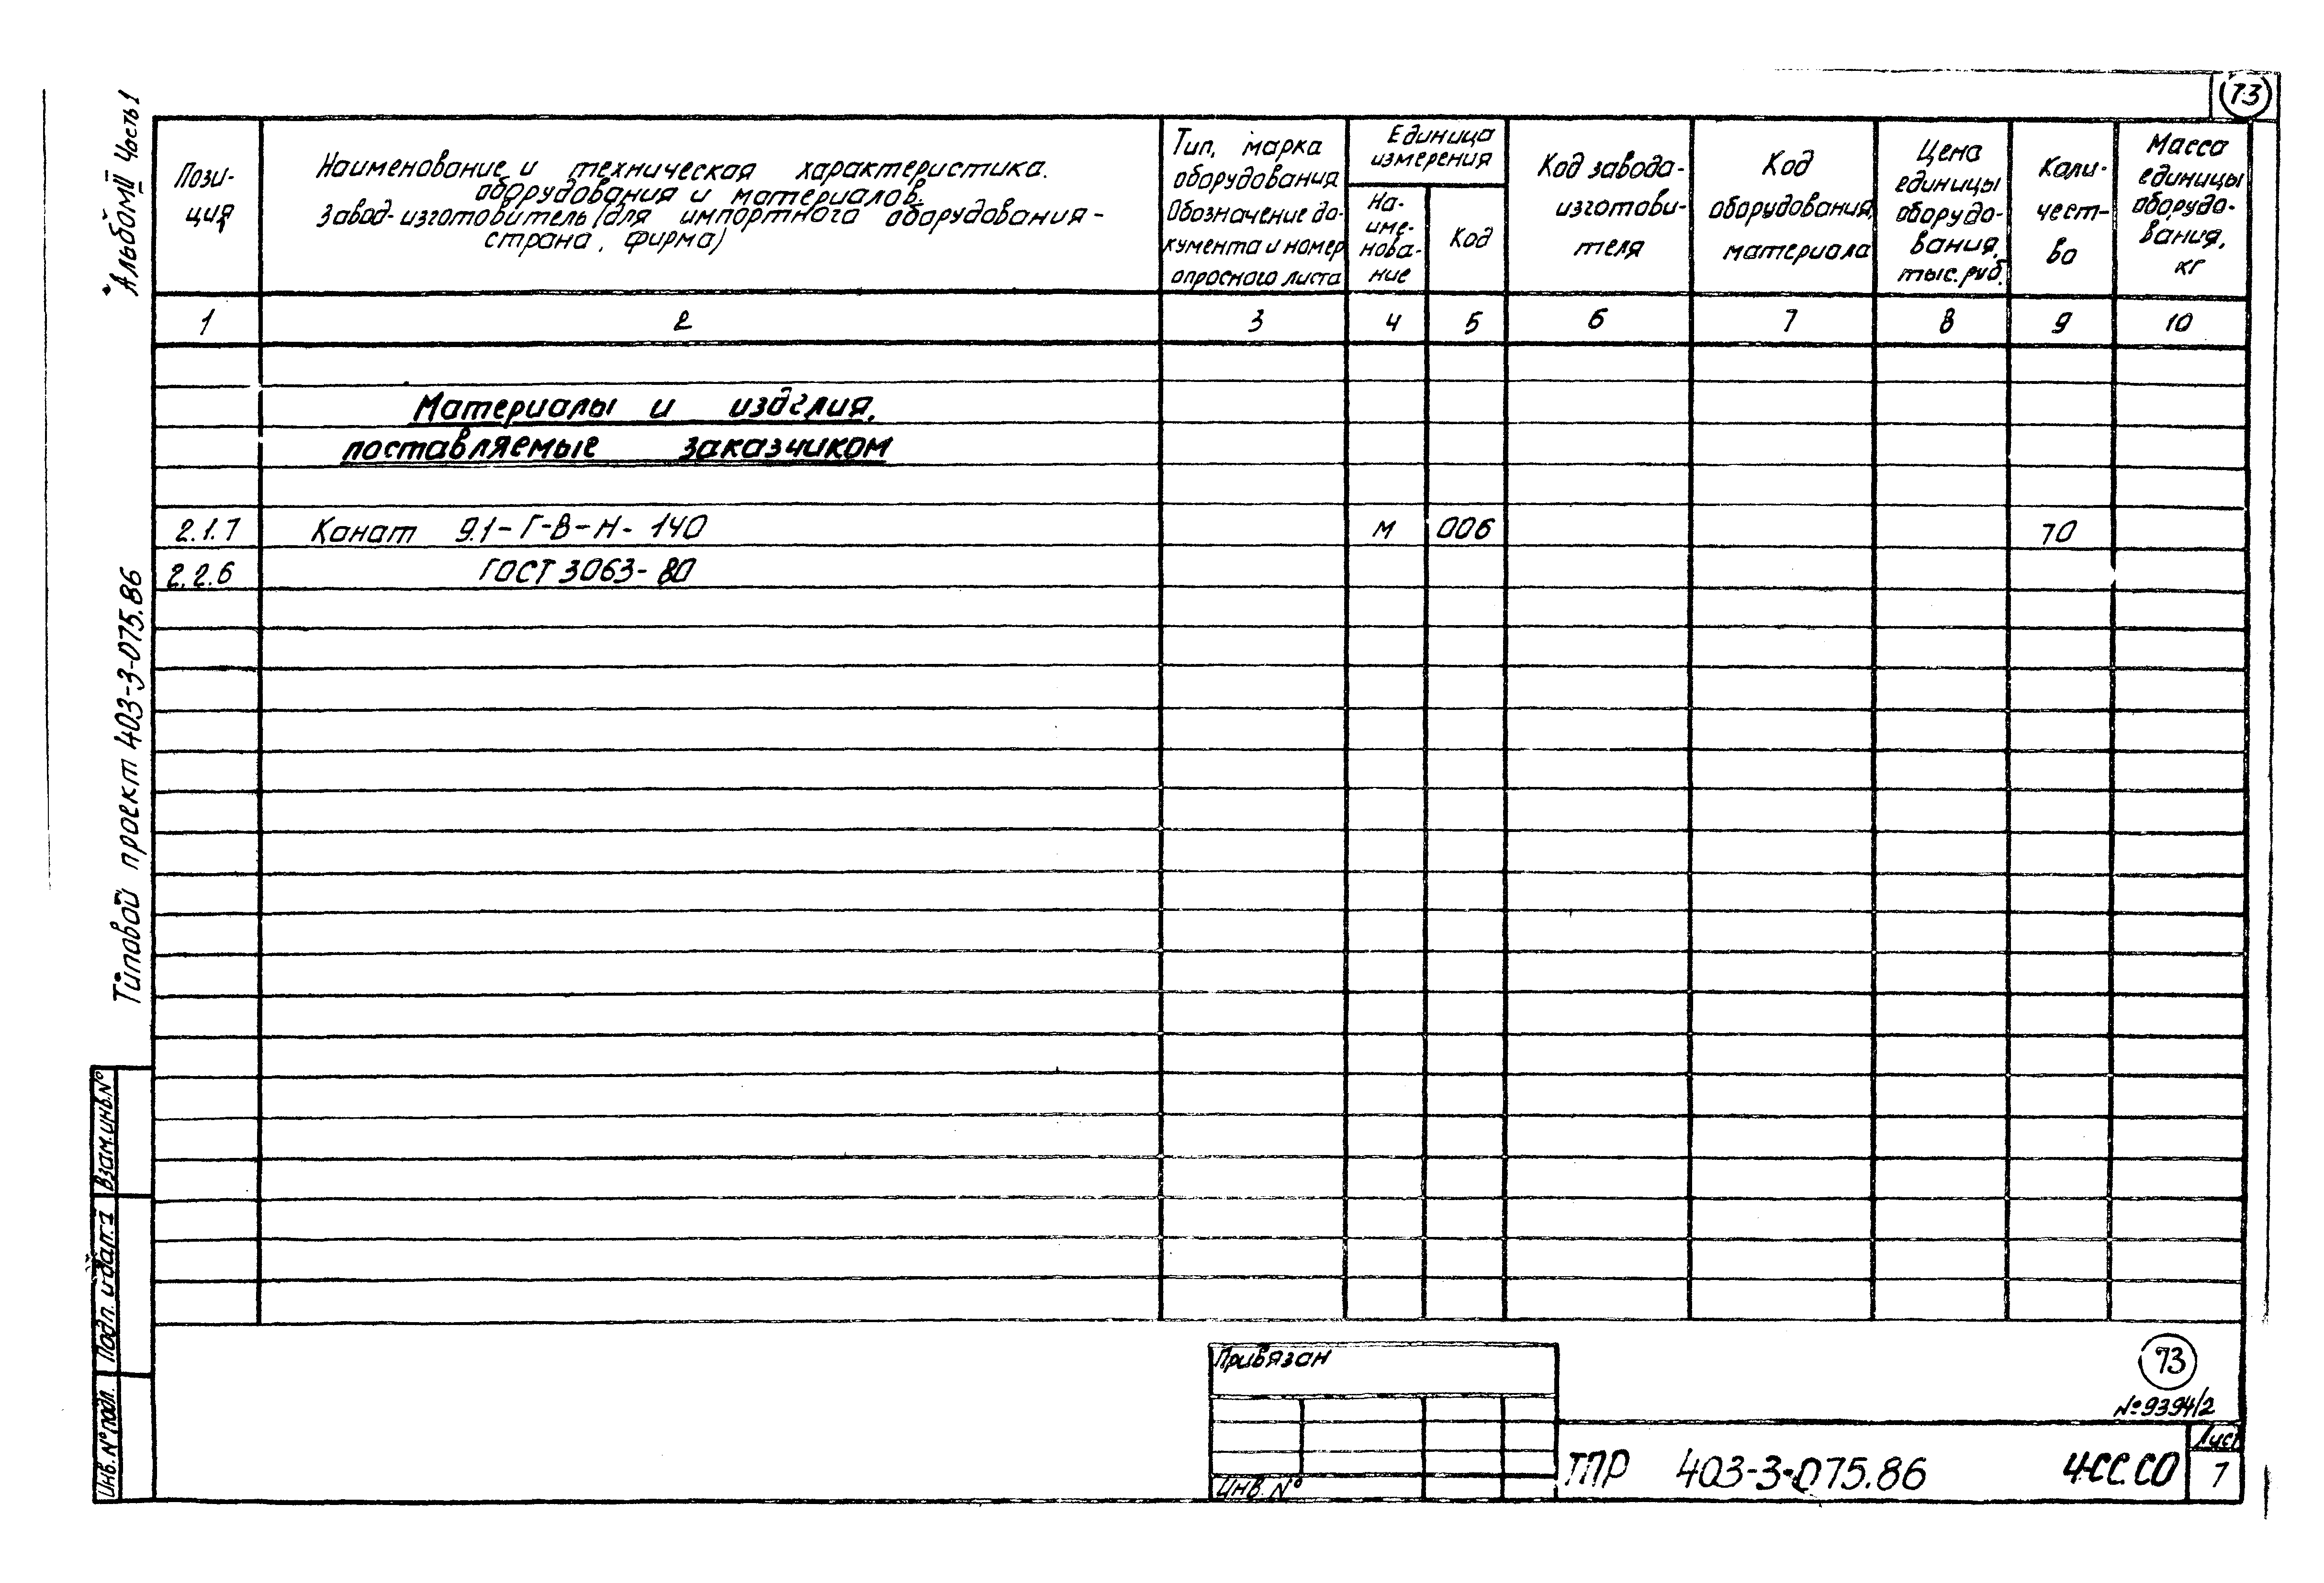 73
Альбом II Часть 1
Типовой проект 403-3-075.86
Пози-
ция
Наименование и техническая характеристика.
оборудования и материалов.
Завод-изготовитель (для импортного оборудования -
страна, фирма)
Тип, марка
оборудования
Обозначение до-
кумента и номер
опросного листа
Единица
измерения
На-
име-
нова-
ние
Код
Код завода-
изготови-
теля
Код
оборудования,
материала
Цена
единицы
оборудо-
вания,
тыс. руб.
Коли-
чест-
во
Масса
единицы
оборудо-
вания,
кг
1 2 3 4 5 6 7 8 9 10
Материалы и изделия,
поставляемые заказчиком
2.1.7 Канат 9.1-Г-В-Н-140 М 006 70
2.2.6 ГОСТ 3063-80
Взам.инв.№
Подп. и дата
Инв.№ подл.
Привязан
Инв. №
73
№9394/2
ТПР 403-3-075.86 4-СС.СО
Лист
7